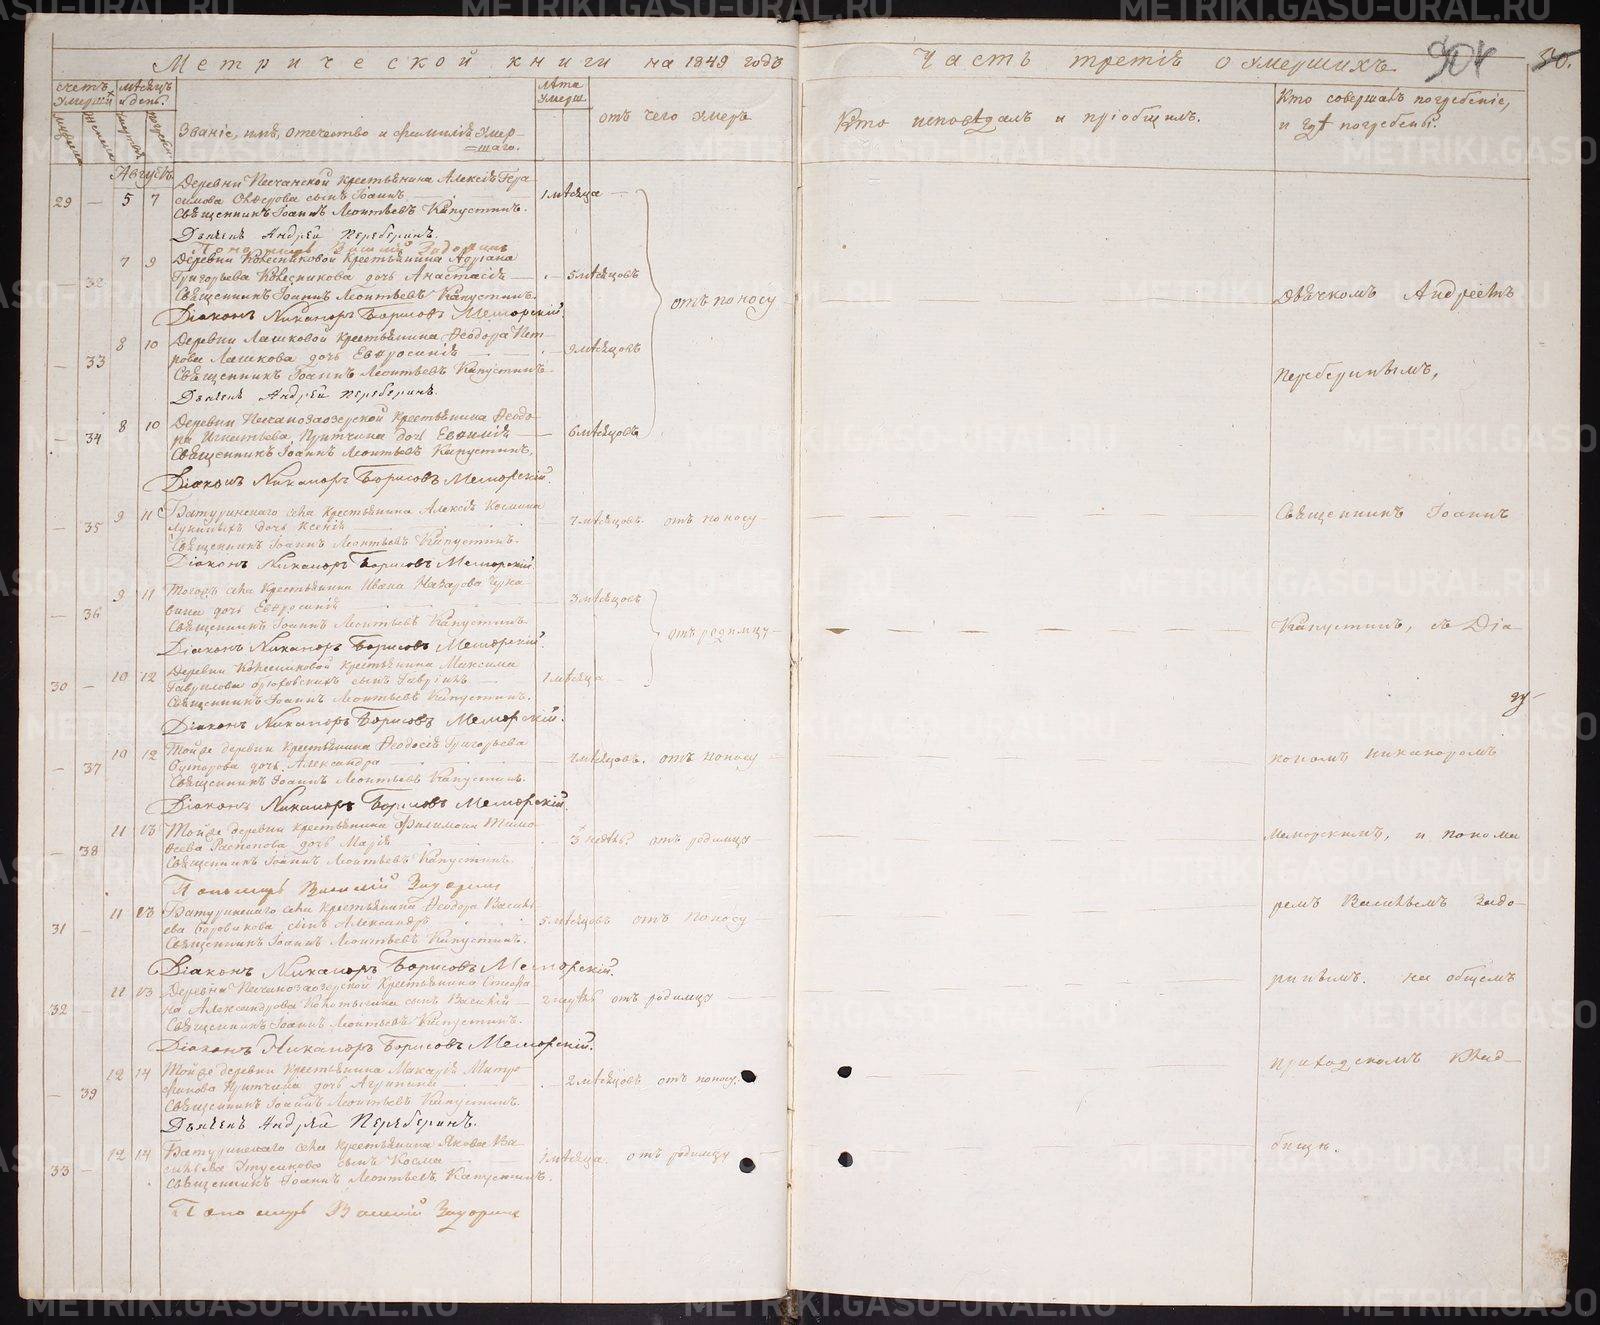 Метрической книги на 1849 годъ
Часть третія о умершихъ
904
30.
Счетъ умершихъ
Мѣсяцъ и день.
Званіе, имя, отечество и фамилія умер-
=шаго.
Лѣта умерш.
отъ чего умеръ
Кто исповѣдалъ и пріобщилъ.
Кто совершалъ погребеніе,
и гдѣ погребены.
Августъ
Деревни Песчанской крестьянина Алексія Гера-
29 — 5 7 симова сынъ Іоаннъ 1 мѣсяца
Священникъ Іоаннъ Леонтьевъ Капустинъ.
Дьячекъ Андрей Переберинъ.
Пономарь Василій Задоринъ
7 9 Деревни Колесниковой крестьянина Адріана
— 32 Григорьева Колесникова дочь Анастасія 5 мѣсяцовъ
Священникъ Іоаннъ Леонтьевъ Капустинъ.
Діаконъ Никаноръ Борисовъ Меморскій.
отъ поносу
8 10 Деревни Лашковой крестьянина Ѳеодора Пет-
— 33 рова Лашкова дочь Евфросинія 9 мѣсяцовъ
Священникъ Іоаннъ Леонтьевъ Капустинъ
Дьячекъ Андрей Переберинъ.
8 10 Деревни Песчанозаозерской крестьянина Ѳеодо-
— 34 ра Игнатьева Притчина дочь Евфимія 6 мѣсяцовъ
Священникъ Іоаннъ Леонтьевъ Капустинъ,
Діаконъ Никаноръ Борисовъ Меморскій.
9 11 Батуринскаго села крестьянина Алексія Космина
— 35 дочь Ксенія 7 мѣсяцовъ. отъ поносу
Священникъ Іоаннъ Леонтьевъ Капустинъ.
Діаконъ Никаноръ Борисовъ Меморскій.
9 11 Тогожъ села крестьянина Ивана Назарова
— 36 дочь Евфросинія 3 мѣсяцовъ
Священникъ Іоаннъ Леонтьевъ Капустинъ
Діаконъ Никаноръ Борисовъ Меморскій.
отъ родимцу
10 12 Деревни Колесниковой крестьянина Максима
30 — Гаврилова сынъ Гавріилъ 1 мѣсяца
Священникъ Іоаннъ Леонтьевъ Капустинъ.
Діаконъ Никаноръ Борисовъ Меморскій.
10 12 Тойже деревни крестьянина Ѳеодосія Григорьева
— 37 дочь Александра 7 мѣсяцовъ. отъ поносу
Священникъ Іоаннъ Леонтьевъ Капустинъ.
Діаконъ Никаноръ Борисовъ Меморскій.
11 13 Тойже деревни крестьянина Филимона Тимо-
— 38 ѳеева Распопова дочь Марія 3 недѣль. отъ родимцу
Священникъ Іоаннъ Леонтьевъ Капустинъ.
Пономарь Василій Задоринъ
11 13 Батуринскаго села крестьянина Ѳеодора Василь-
31 — ева Боровикова сынъ Александръ 5 мѣсяцовъ отъ поносу
Священникъ Іоаннъ Леонтьевъ Капустинъ.
Діаконъ Никаноръ Борисовъ Меморскій.
11 13 Деревни Песчанозаозерской крестьянина Стефа-
32 — на Александрова сынъ Василій 2 недѣль отъ родимцу
Священникъ Іоаннъ Леонтьевъ Капустинъ.
Діаконъ Никаноръ Борисовъ Меморскій.
12 14 Тойже деревни крестьянина Макарія Митро-
— 39 фанова Притчина дочь Агрипина 2 мѣсяцовъ отъ поносу.
Священникъ Іоаннъ Леонтьевъ Капустинъ.
Дьячекъ Андрей Переберинъ.
12 14 Батуринскаго села крестьянина Якова Ва-
33 — сильева сынъ Косма 1 мѣсяца. отъ родимцу
Священникъ Іоаннъ Леонтьевъ Капустинъ.
Пономарь Василій Задоринъ
Дьячкомъ Андреемъ
Переберинымъ,
Священникъ Іоаннъ
Капустинъ, съ Діа-
кономъ Никаноромъ
Меморскимъ, и понома-
ремъ Васильемъ Задо-
ринымъ. на общемъ
приходскомъ клад-
бищѣ.
METRIKI.GASO-URAL.RU